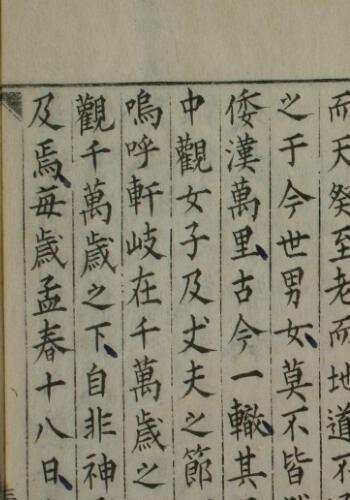 而天癸至老而地道不
之于今世男女莫不皆
倭漢萬里古今一轍其
中觀女子及丈夫之節
嗚呼軒岐在千萬歳之
觀千萬歳之下自非神
及焉每歳孟春十八日